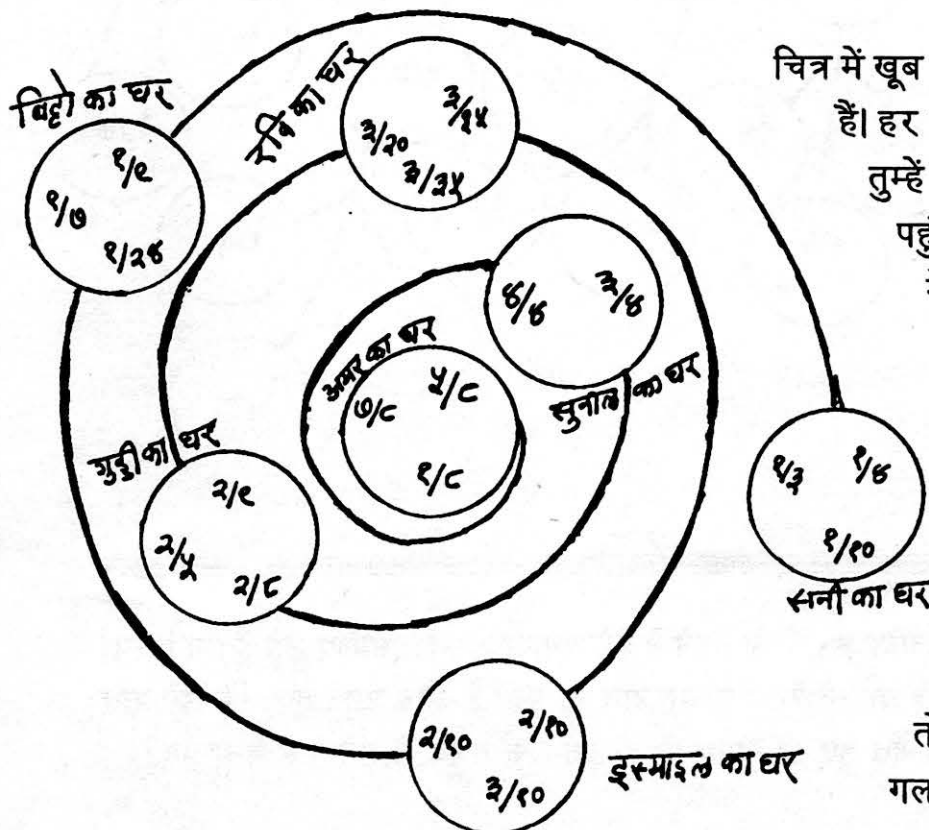 चित्र में खूब
हैं। हर
तुम्हें
पहुं
बिट्टो का घर
१/९
१/७
१/२४
रवि का घर
३/२०
३/३५
सुनील का घर
४/४ ३/४
अमर का घर
७/८ ५/८
१/८
गुड्डी का घर
२/९
२/५
२/८
१/३ १/४
१/१०
सनी का घर
२/१० २/१०
३/१०
इस्माइल का घर
तो
गल